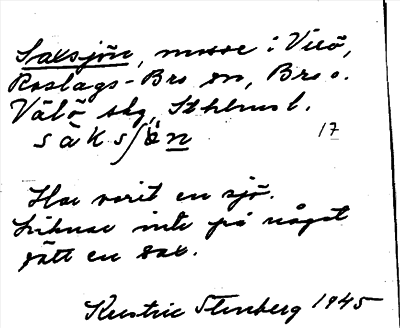 Saksjön, mosse i Vilö,
Roslags-Bro sn, Bro o.
Välö skg, Sthlms l.
sàksʃö̀n
17
Har varit en sjö.
Liknar inte på något
sätt en sax.
Kerstin Stenberg 1945